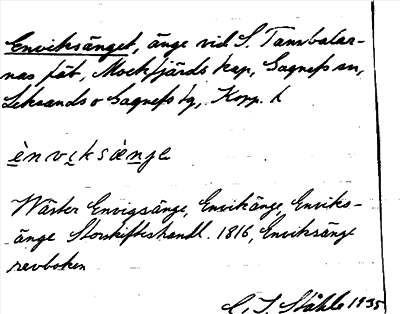 Enviksänget, änge vid S. Tansbalar-
nas fäb, Mockfjärds kap, Gagnefs sn,
Leksands o Gagnefs tg, Kopp. l
ènviksänge
Wäster Envigsänge, Envikänge, Enviks-
änge Storskifteshandl. 1816, Enviksänge
revboken
C. I. Ståhle 1935